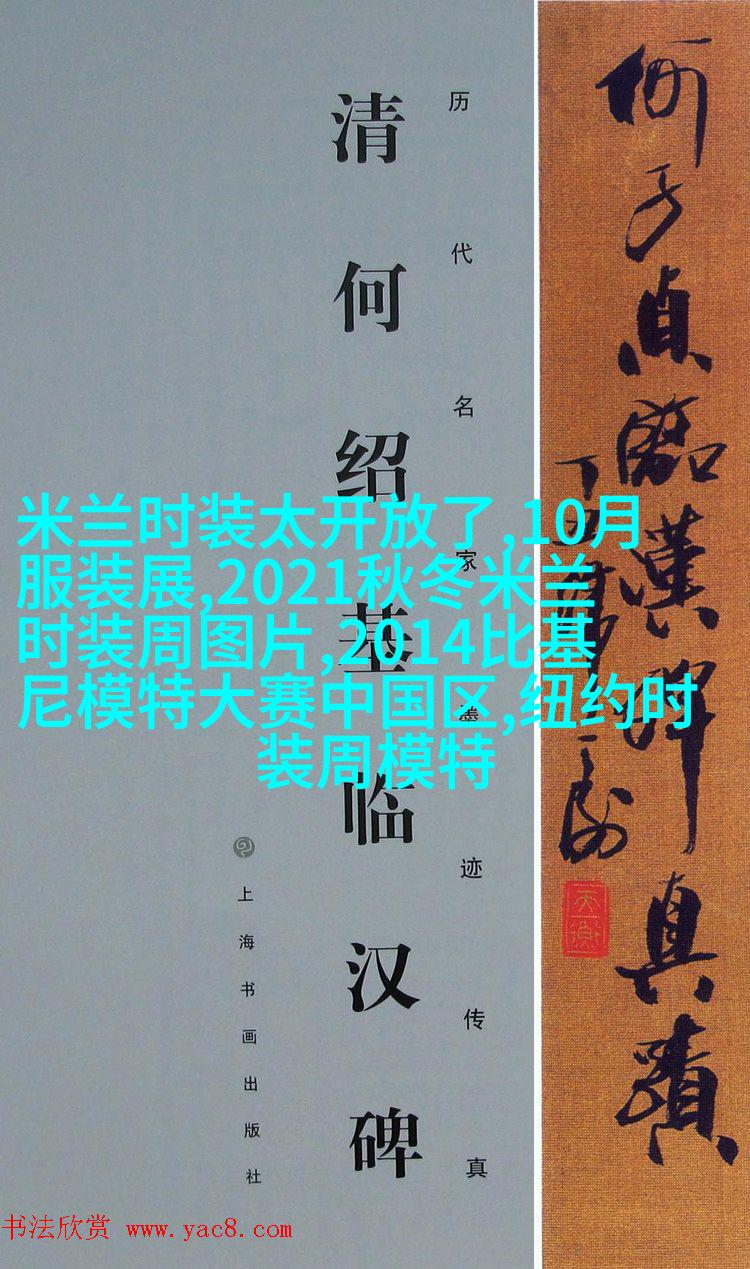 何子貞臨漢碑真蹟
丁丑
天衡
历代名家墨迹传真
清何绍基临汉碑
上海书画出版社
米兰时装太开放了,10月
服装展,2021秋冬米兰
时装周图片,2014比基
尼模特大赛中国区,纽约时
装周模特
书法欣赏 www.yac8.com